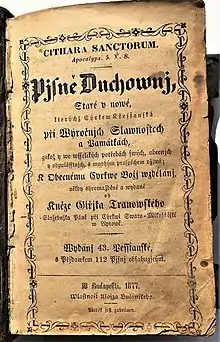 CITHARA SANCTORUM.
Apocalyps. 5. v. 8.
Pjsně Duchownj,
Staré y nowé,
kterýchž Cyrkew Křesťanská
při Wýročných Slawnostech
a Památkách,
gakož y we wsselikých potřebách swých, obecných
y obzwlásstných, s mnohým prospěchem vžjwá;
K Obecnému Cyrkwe Božj wzdělanj,
někdy shromážděné a wydané
od
Kněze Giřjka Tranowského
Služebnjka Páně při Cyrkwi Swato-Mikulášské
w Liptowě.
Wydánj 43. Pessťanské,
s Přjdawkem 112 Pjsnj obsahugjcým.
W Budapešti, 1877.
Wlastnosť Aloiza Bučánského.